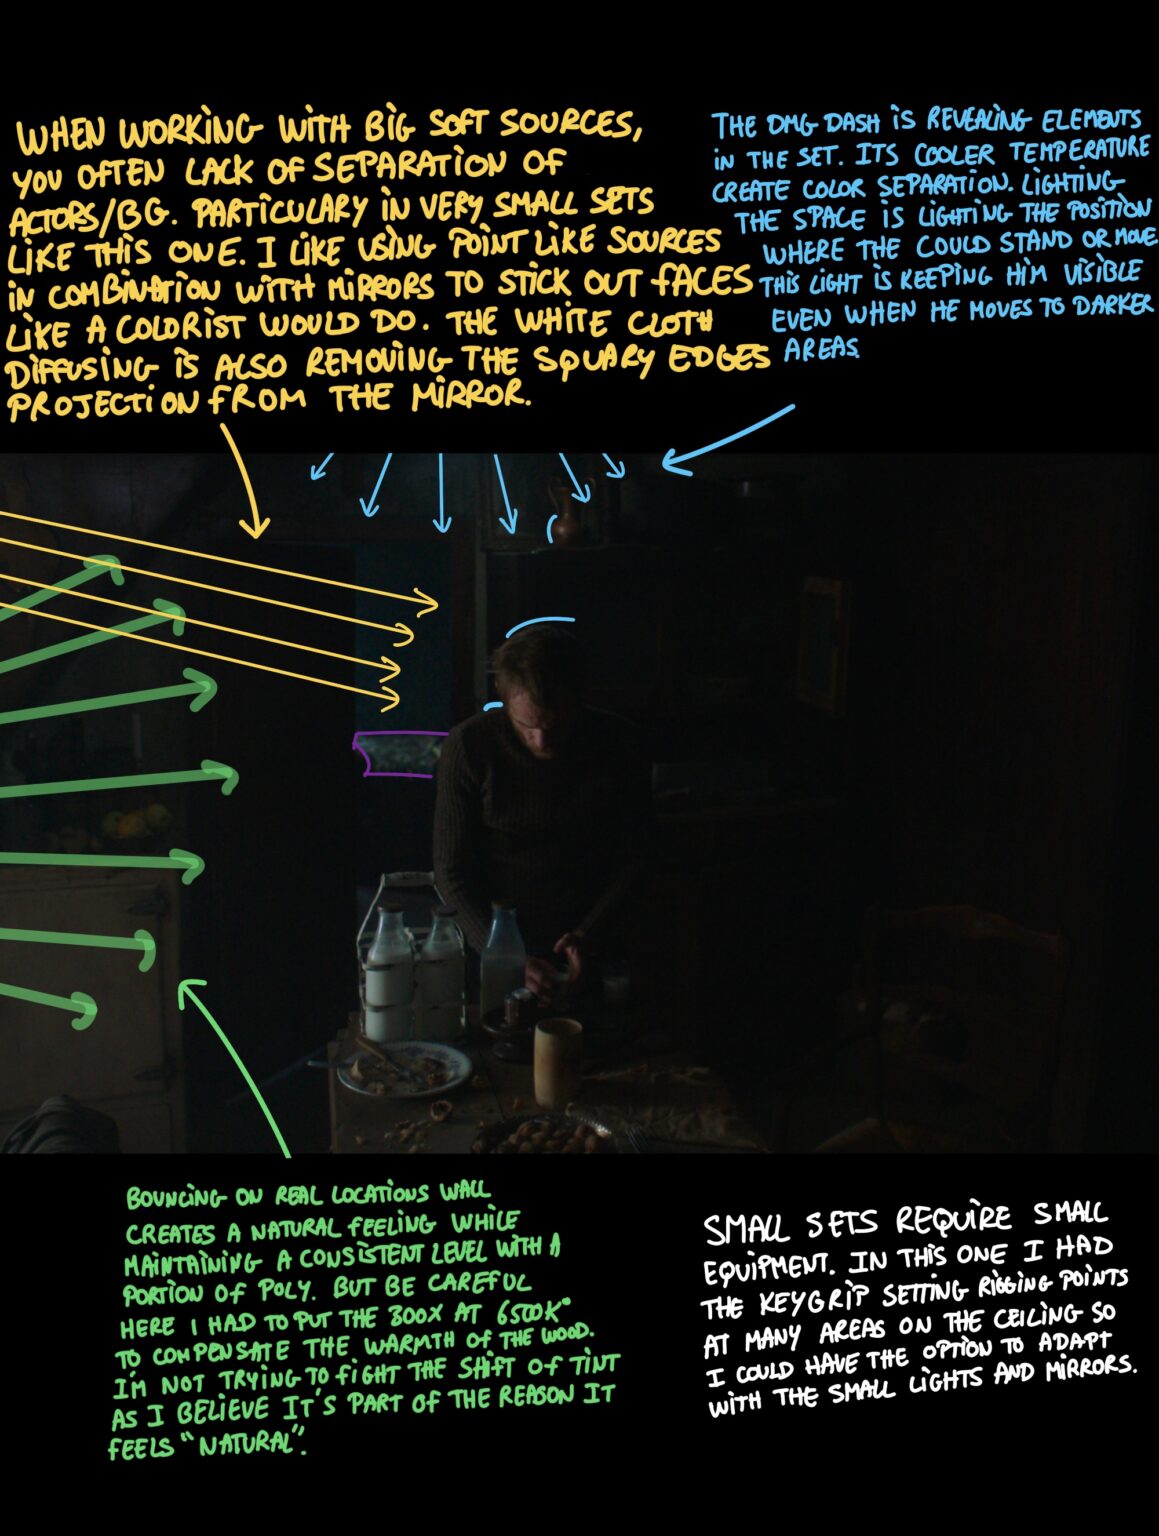 WHEN WORKING WITH BIG SOFT SOURCES,
YOU OFTEN LACK OF SEPARATION OF
ACTORS/BG. PARTICULARY IN VERY SMALL SETS
LIKE THIS ONE. I LIKE USING POINT LIKE SOURCES
IN COMBINATION WITH MIRRORS TO STICK OUT FACES
LIKE A COLORIST WOULD DO. THE WHITE CLOTH
DIFFUSING IS ALSO REMOVING THE SQUARY EDGES
PROJECTION FROM THE MIRROR.
THE DMG DASH IS REVEALING ELEMENTS
IN THE SET. ITS COOLER TEMPERATURE
CREATE COLOR SEPARATION. LIGHTING
THE SPACE IS LIGHTING THE POSITION
WHERE THE COULD STAND OR MOVE.
THIS LIGHT IS KEEPING HIM VISIBLE
EVEN WHEN HE MOVES TO DARKER
AREAS.
BOUNCING ON REAL LOCATIONS WALL
CREATES A NATURAL FEELING WHILE
MAINTAINING A CONSISTENT LEVEL WITH A
PORTION OF POLY. BUT BE CAREFUL
HERE I HAD TO PUT THE 300X AT 6500K°
TO COMPENSATE THE WARMTH OF THE WOOD.
I'M NOT TRYING TO FIGHT THE SHIFT OF TINT
AS I BELIEVE IT'S PART OF THE REASON IT
FEELS "NATURAL".
SMALL SETS REQUIRE SMALL
EQUIPMENT. IN THIS ONE I HAD
THE KEYGRIP SETTING RIGGING POINTS
AT MANY AREAS ON THE CEILING SO
I COULD HAVE THE OPTION TO ADAPT
WITH THE SMALL LIGHTS AND MIRRORS.